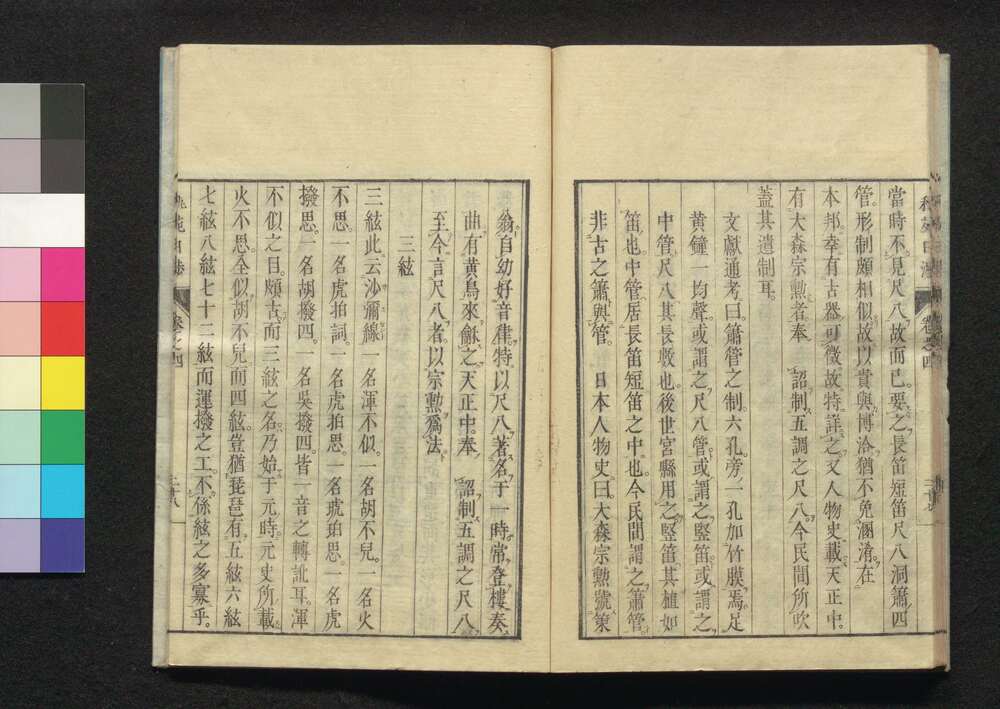 當時不見尺八故而已要之長笛短笛尺八洞簫四
管形制頗相似故以貴與博洽猶不免溷淆在
本邦幸有古器可徵故特詳之又人物史載天正中
有大森宗勲者奉　詔制五調之尺八今民間所吹
蓋其遺制耳
文獻通考曰簫管之制六孔旁一孔加竹膜焉足
黄鐘一均聲或謂之尺八管或謂之竪笛或謂之
中管尺八其長數也後世宮縣用之竪笛其植如
笛也中管居長笛短笛之中也今民間謂之簫管
非古之簫與管　日本人物史曰大森宗勲號策
翁自幼好音律特以尺八著名于一時常登樓奏
曲有黄鳥來龢之天正中奉　詔制五調之尺八
至今言尺八者以宗勲爲法
三絃
三絃此云沙彌線一名渾不似一名胡不兒一名火
不思一名虎拍詞一名虎拍思一名琥珀思一名虎
撥思一名胡撥四一名吳撥四皆一音之轉訛耳渾
不似之目頗古而三絃之名乃始于元時元史所載
火不思全似胡不兒而四絃豈猶琵琶有五絃六絃
七絃八絃七十二絃而運撥之工不係絃之多寡乎
卷之四
二十八